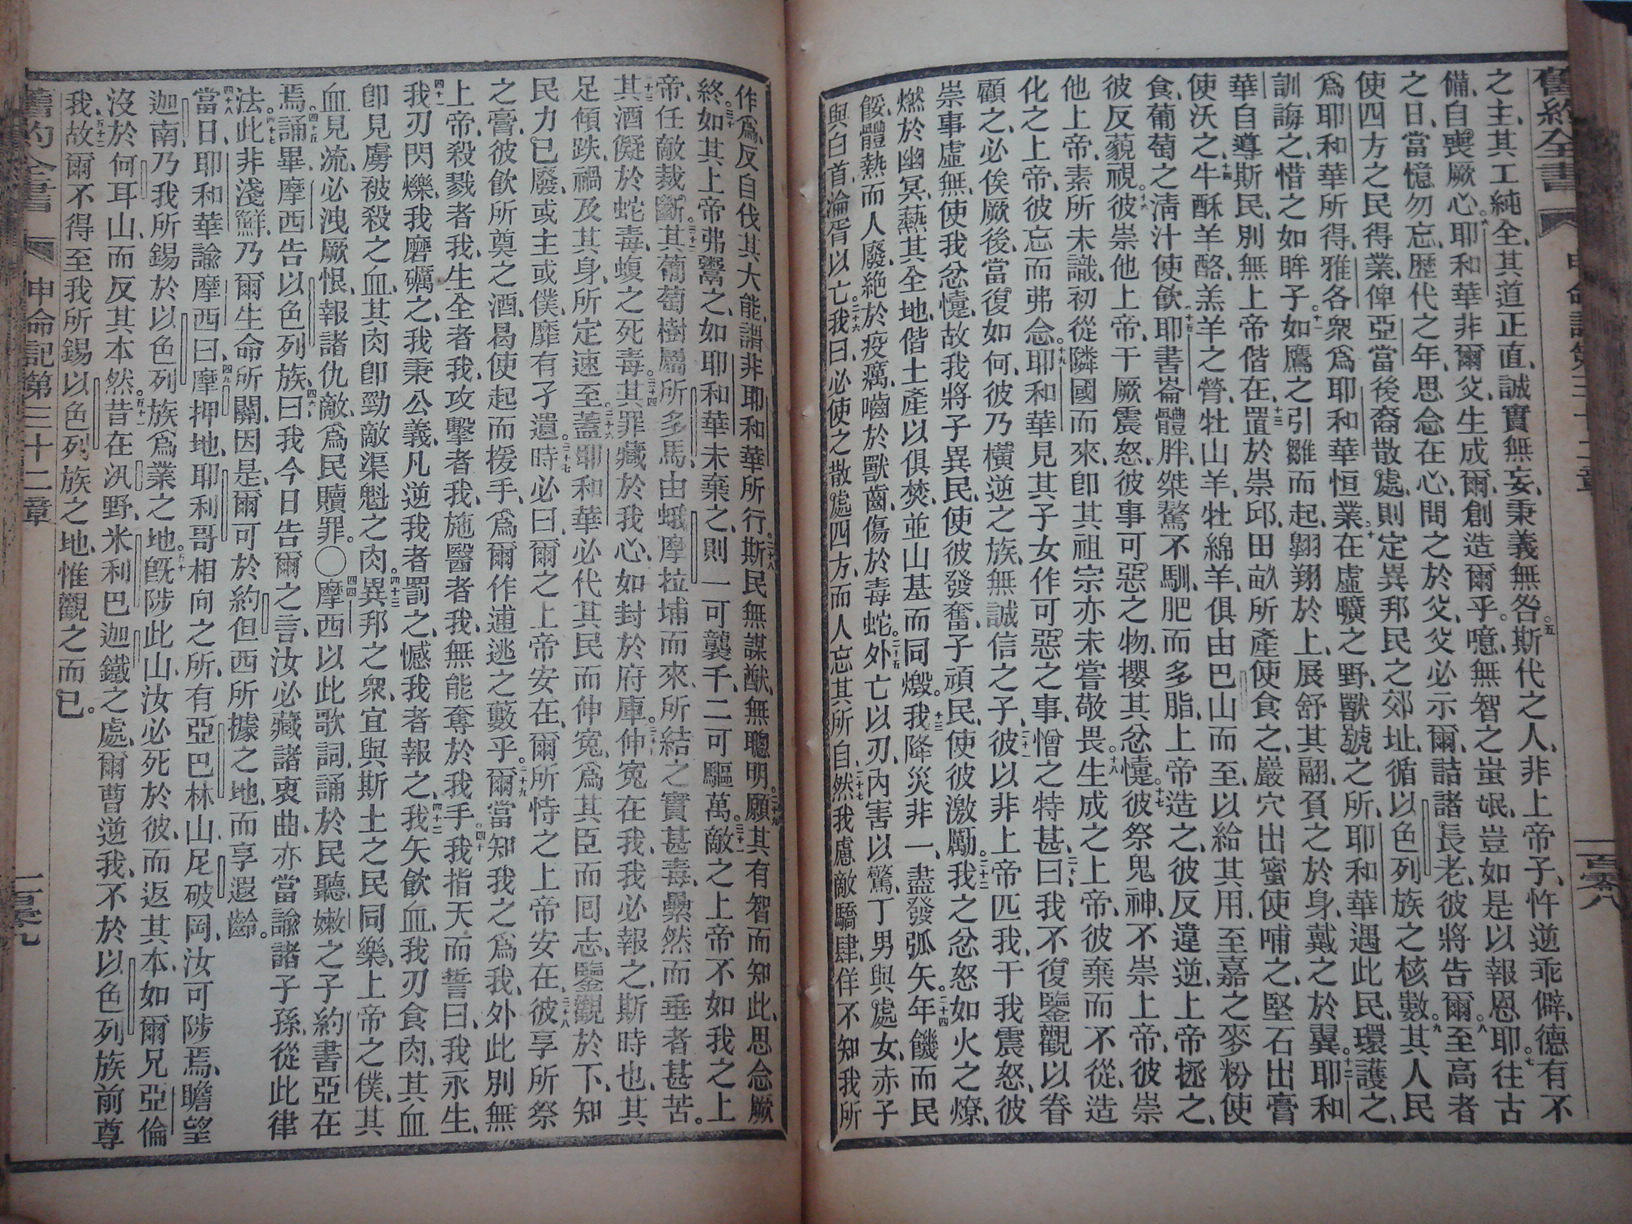 舊約全書 申命記第三十二章 一百零八
之主、其工純全、其道正直、誠實無妄、秉義無咎。五斯代之人、非上帝子、忤逆乖僻、德有不
備、自喪厥心。六耶和華非爾父、生成爾、創造爾乎。噫、無智之蚩氓、豈如是以報恩耶。七往古
之日、當憶勿忘、歷代之年、思念在心、問之於父、父必示爾、詰諸長老、彼將告爾。八至高者
使四方之民得業、俾亞當後裔散處、則定異邦民之郊址、循以色列族之核數。九其人民
爲耶和華所得、雅各衆爲耶和華恒業。十在虛曠之野、獸號之所、耶和華遇此民、環護之、
訓誨之、惜之如眸子。十一如鷹之引雛而起、翱翔於上、展舒其翮、負之於身、戴之於翼。十二耶和
華自導斯民、別無上帝偕在。十三置於崇邱、田畝所產使食之、巖穴出蜜使哺之、堅石出膏
使沃之。十四牛酥羊酪、羔羊之膋、牡山羊、牡綿羊、俱由巴山而至、以給其用、至嘉之麥粉使
食、葡萄之淸汁使飲。十五耶書崙體胖桀驁不馴、肥而多脂、上帝造之、彼反違逆、上帝拯之、
彼反藐視。十六彼崇他上帝、干厥震怒、彼事可惡之物、攖其忿懥。十七彼祭鬼神、不崇上帝、彼崇
他上帝、素所未識、初從隣國而來、卽其祖宗亦未嘗敬畏。十八生成之上帝、彼棄而不從、造
化之上帝、彼忘而弗念。十九耶和華見其子女作可惡之事、憎之特甚。二十曰、我不復鑒觀以眷
顧之、必俟厥後當復如何、彼乃橫逆之族、無誠信之子。二十一彼以非上帝匹我、干我震怒、彼
崇事虛無、使我忿懥、故我將子異民、使彼發奮、子頑民、使彼激勵。二十二我之忿怒、如火之燎、
燃於幽冥、熱其全地、偕土產以俱焚、並山基而同燬。二十三我降災非一、盡發弧矢。二十四年饑而民
餒、體熱而人廢、絕於疫癘、嚙於獸齒、傷於毒蛇。二十五外亡以刃、內害以驚、丁男與處女、赤子
與白首、淪胥以亡。二十六我曰、必使之散處四方、而人忘其所自。二十七然我慮敵驕肆、佯不知我所
作爲、反自伐其大能、謂非耶和華所行。二十八斯民無謀猷、無聰明。二十九願其有智而知此、思念厥
終。三十如其上帝弗鬻之、如耶和華未棄之、則一可襲千、二可驅萬。三十一敵之上帝、不如我之上
帝、任敵裁斷。三十二其葡萄樹屬所多馬、由蛾摩拉埔而來、所結之實甚毒、纍然而垂者甚苦。
三十三其酒儗於蛇毒、蝮之死毒。三十四其罪藏於我心、如封於府庫。三十五伸寃在我、我必報之、斯時也、其
足傾跌、禍及其身、所定速至。三十六蓋耶和華必代其民而伸寃、爲其臣而囘志、鑒觀於下、知
民力已廢、或主或僕、靡有孑遺。三十七時必曰、爾之上帝安在、爾所恃之上帝安在。三十八彼享所祭
之膏、彼飲所奠之酒、曷使起而援手、爲爾作逋逃之藪乎。三十九爾當知我之爲我、外此別無
上帝、殺戮者我、生全者我、攻擊者我、施醫者我、無能奪於我手。四十我指天而誓曰、我永生、
四十一我刃閃爍、我磨礪之、我秉公義、凡逆我者罰之、憾我者報之。四十二我矢飲血、我刃食肉、其血
卽見虜被殺之血、其肉卽勁敵渠魁之肉。四十三異邦之衆、宜與斯土之民同樂、上帝之僕、其
血見流、必洩厥恨、報諸仇敵、爲民贖罪。〇四四摩西以此歌詞、誦於民聽、嫩之子約書亞在
焉。四十五誦畢、摩西告以色列族、四六曰、我今日告爾之言、汝必藏諸衷曲、亦當諭諸子孫、從此律
法。四十七此非淺鮮、乃爾生命所關、因是爾可於約但西所據之地、而享遐齡。
四十八當日、耶和華諭摩西曰、四九摩押地、耶利哥相向之所、有亞巴林山尼破岡、汝可陟焉、瞻望
迦南、乃我所錫於以色列族爲業之地。五十旣陟此山、汝必死於彼、而返其本、如爾兄亞倫
沒於何耳山、而反其本然。五十一昔在汛野、米利巴迦鐵之處、爾曹逆我、不於以色列族前尊
我、五十二故爾不得至我所錫以色列族之地、惟觀之而已。
舊約全書 申命記第三十二章 一百零九